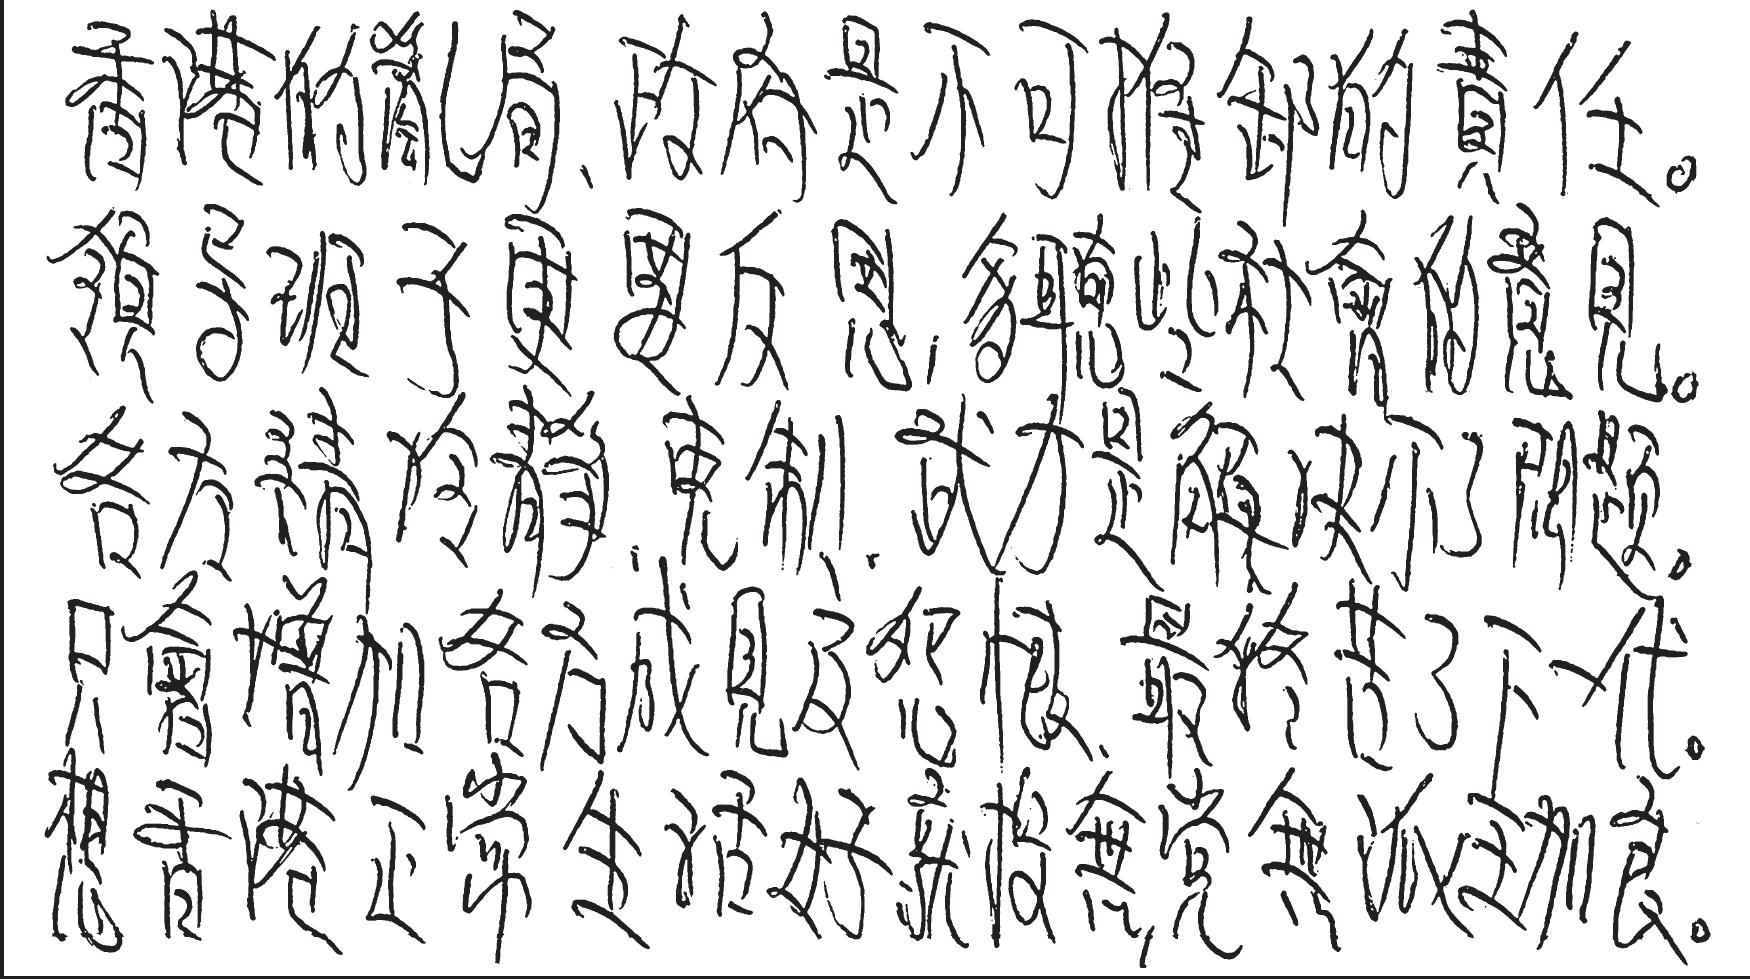 香港的亂局、政府是不可推卸的責任。
領导班子更要反思,多聽些社會的意見。
各方請冷靜,克制、武力是解決不了問題。
只會增加各方成見及怨恨、最終苦了下一代。
想香港正常生活好 無党,無派